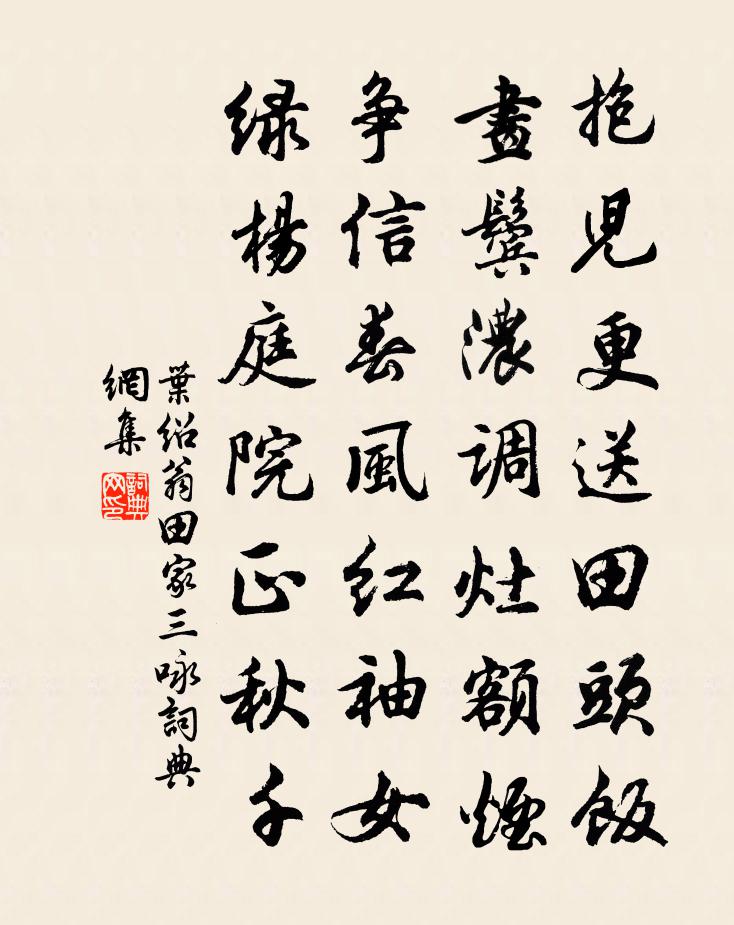 抱児更送田頭飯
畫鬢濃調灶額煙
争信春風紅袖女
緑楊庭院正秋千
葉紹翁田家三咏詞典
網集
詞典網印